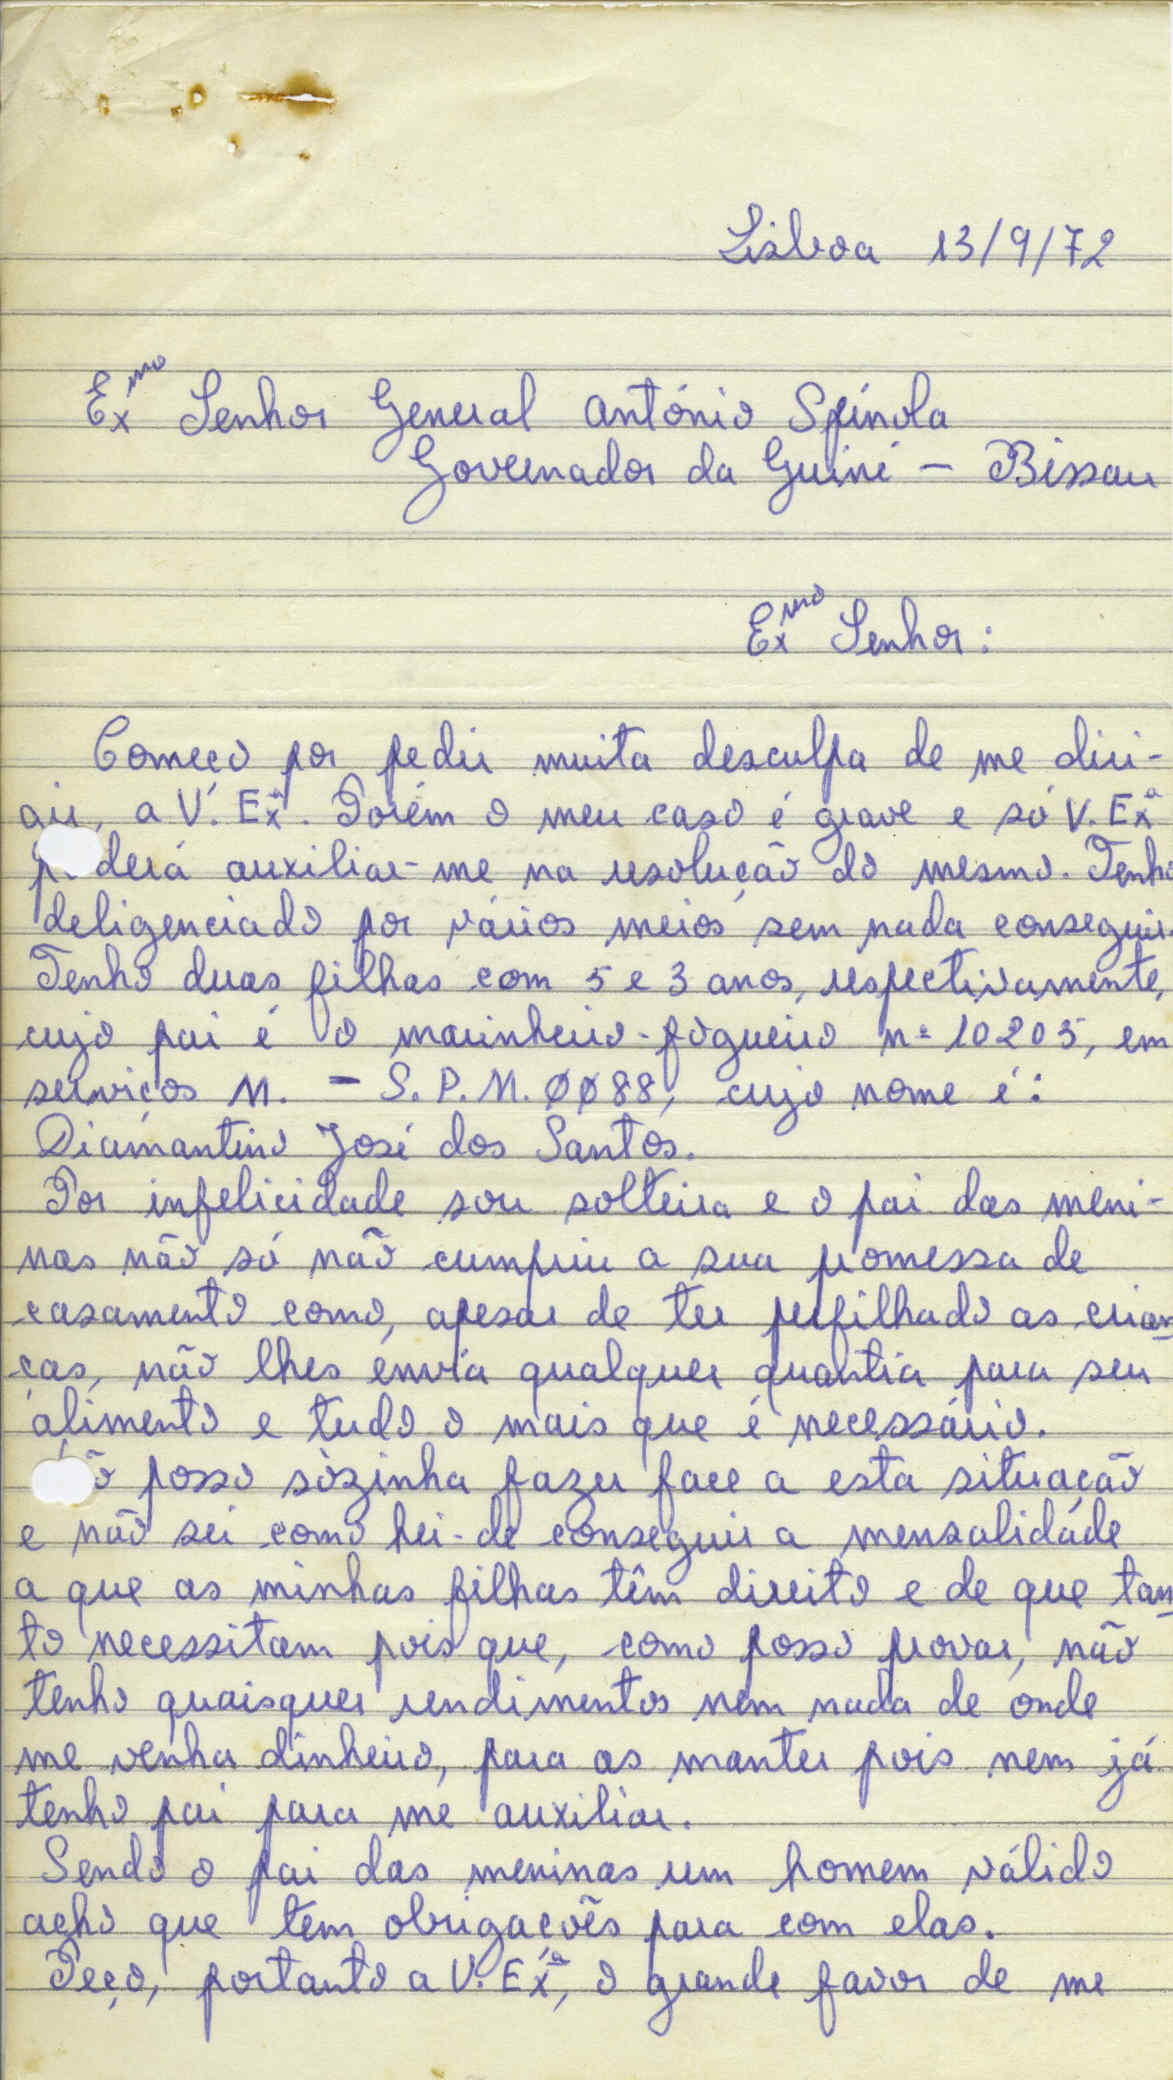 Lisboa 13/9/72
Exmo Senhor General António Spínola
Governador da Guiné - Bissau
Exmo Senhor:
Começo por pedir muita desculpa de me diri-
gir, a V. Exª. Porém o meu caso é grave e só V. Exª
poderá auxiliar-me na resolução do mesmo. Tenho
deligenciado por vários meios sem nada conseguir.
Tenho duas filhas com 5 e 3 anos, respectivamente,
cujo pai é o marinheiro-fogueiro nº 10205, em
serviços M. - S.P.M. 0088, cujo nome é:
Diamantino José dos Santos.
Por infelicidade sou solteira e o pai das meni-
nas não só não cumpriu a sua promessa de
casamento como, apesar de ter perfilhado as crian
ças, não lhes envia qualquer quantia para seu
alimento e tudo o mais que é necessário.
Não posso sòzinha fazer face a esta situação
e não sei como hei-de conseguir a mensalidade
a que as minhas filhas têm direito e de que tan
to necessitam pois que, como posso provar, não
tenho quaisquer rendimentos nem nada de onde
me venha dinheiro, para as manter pois nem já
tenho pai para me auxiliar.
Sendo o pai das meninas um homem válido
acho que tem obrigações para com elas.
Peço, portanto a V. Exª, o grande favor de me